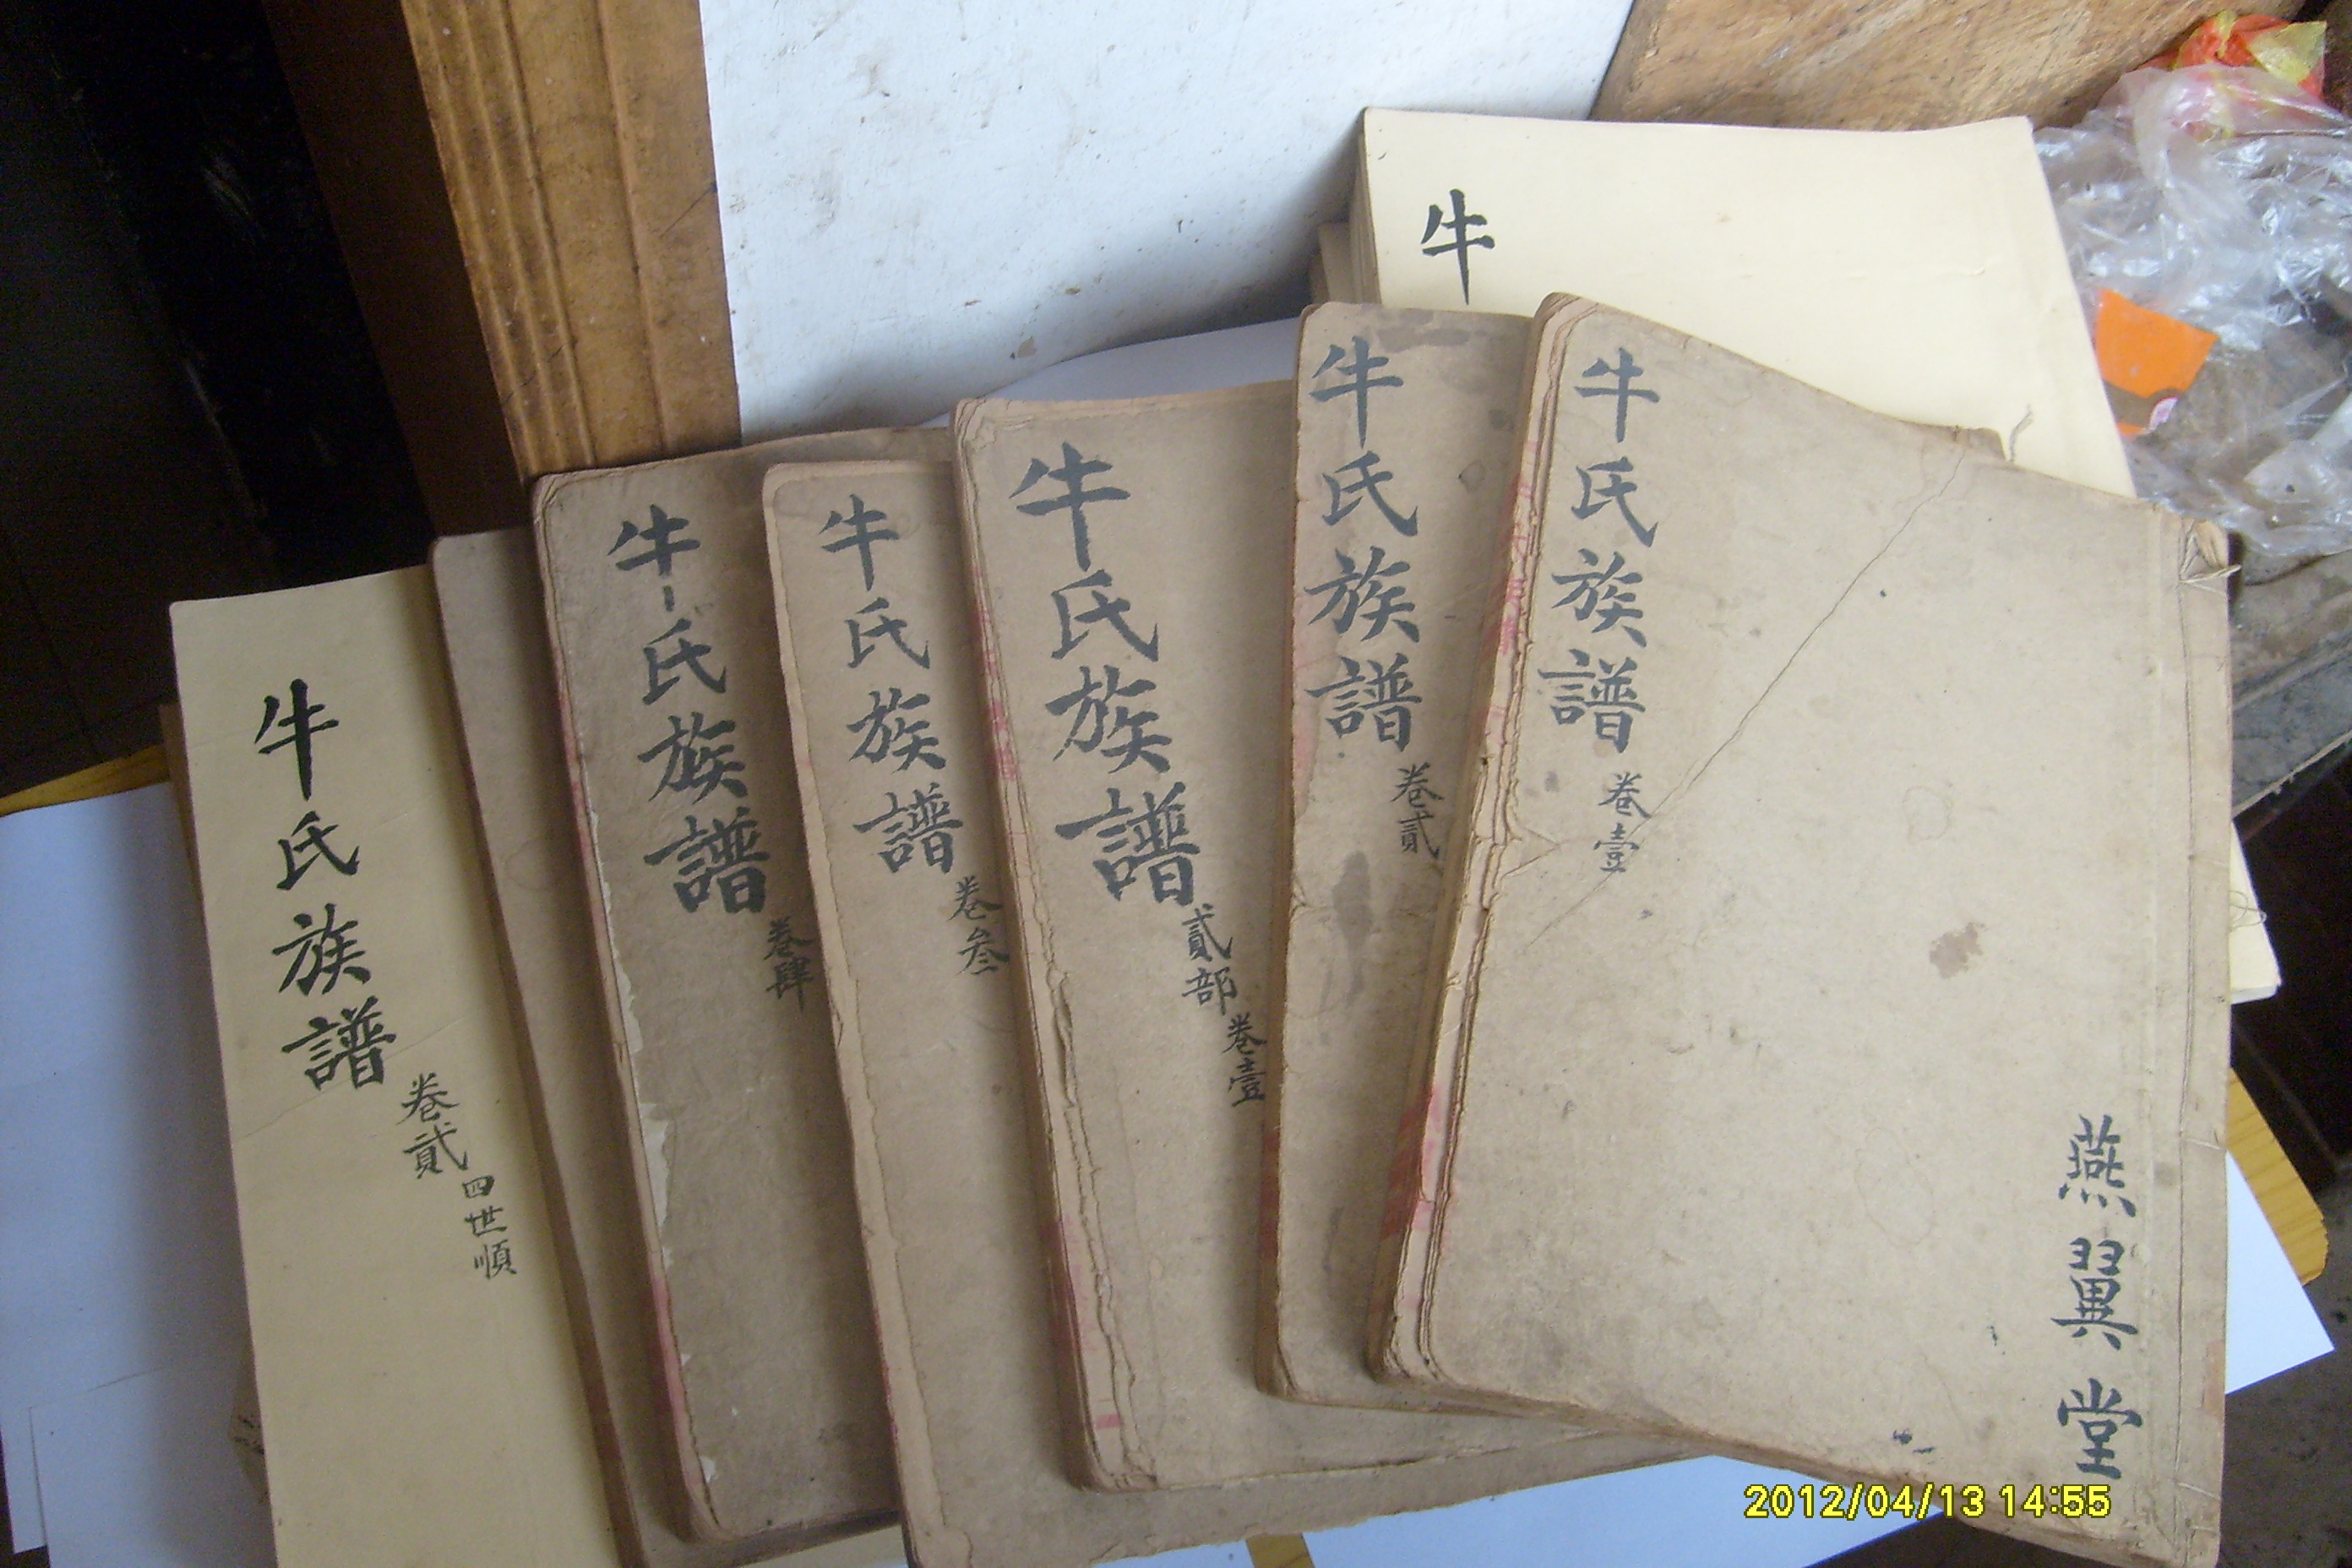 牛
牛氏族譜 卷壹
燕翼堂
牛氏族譜 卷貳
牛氏族譜 貳部 卷壹
牛氏族譜 卷叁
牛氏族譜 卷肆
牛氏族譜 卷貳 四世順
2012/04/13 14:55